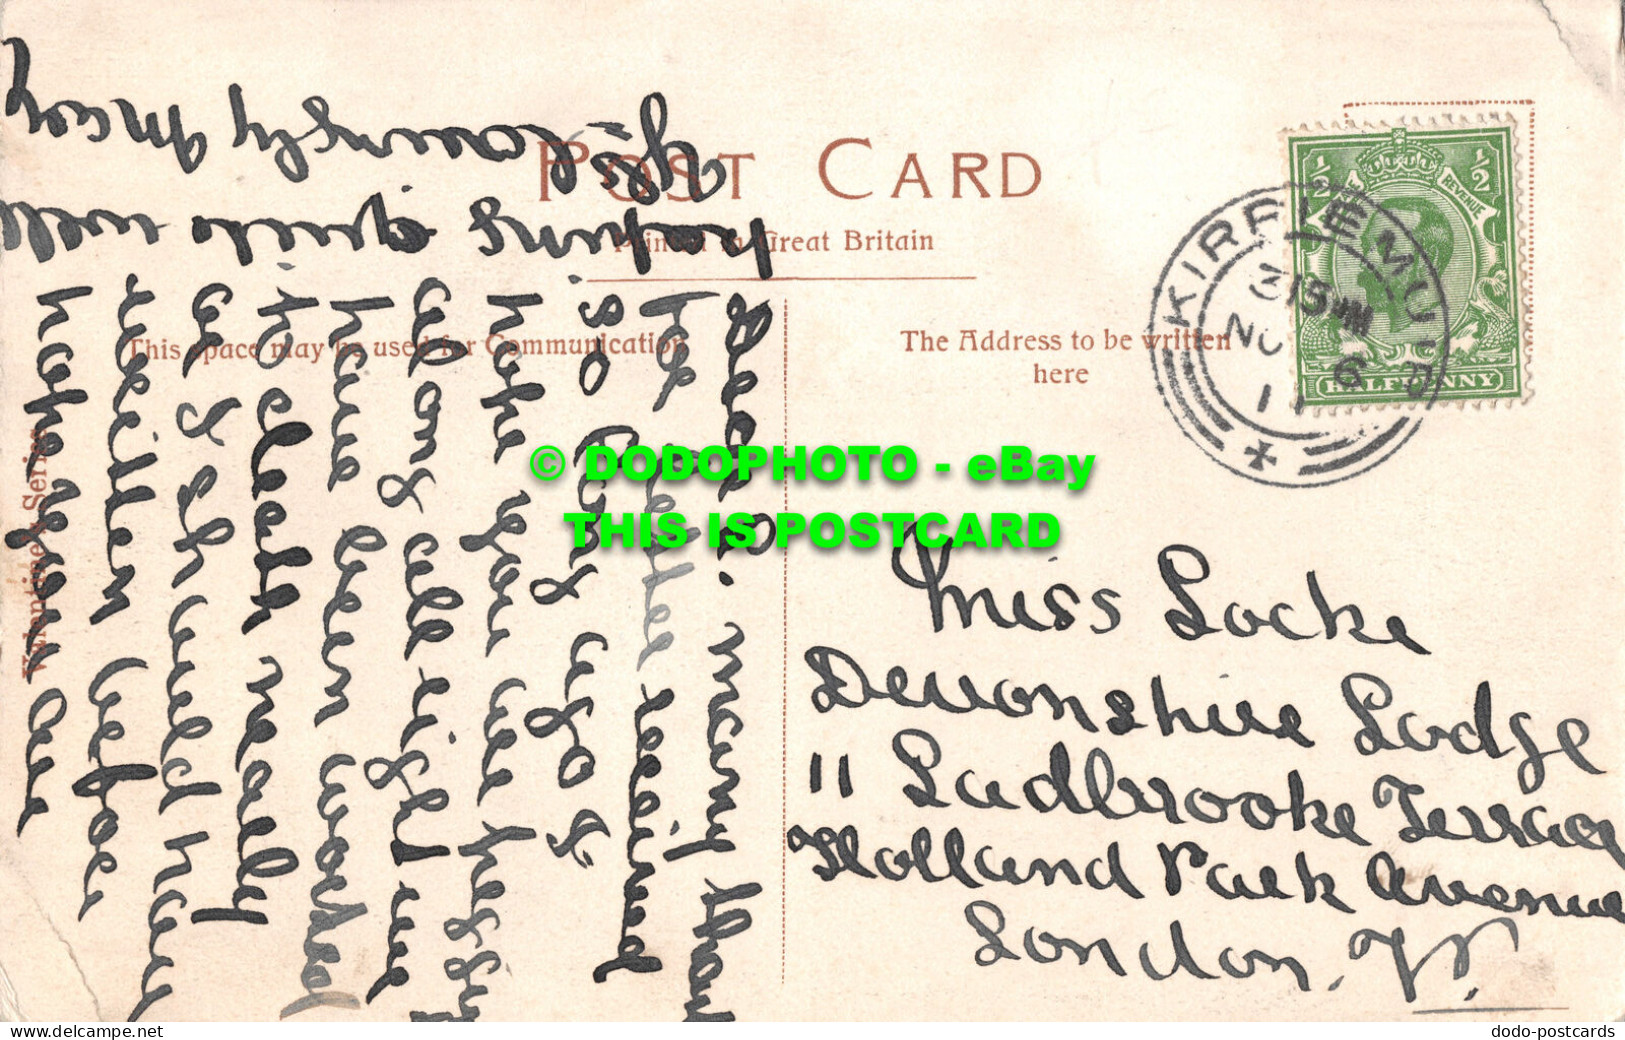 POST CARD
Printed in Great Britain
This space may be used for Communication
The Address to be written
here
Valentine's Series
½ ½
REVENUE
HALFPENNY
KIRRIEMUIR
3 15 PM
NO 6
11
Dear A. many than
for letter received
so long ago &
hope you are keepi
along all right we
have been worked
to death really
or I should have
written before
hope you are
keeping quite well
Lovingly Mary
Miss Locke
Devonshire Lodge
11 Ladbrooke Terrace
Holland Park Avenue
London. W.
© DODOPHOTO - eBay
THIS IS POSTCARD
dodo-postcards